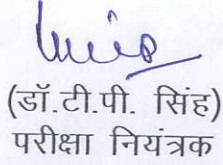 (डॉ.टी.पी. सिंह)
परीक्षा नियंत्रक